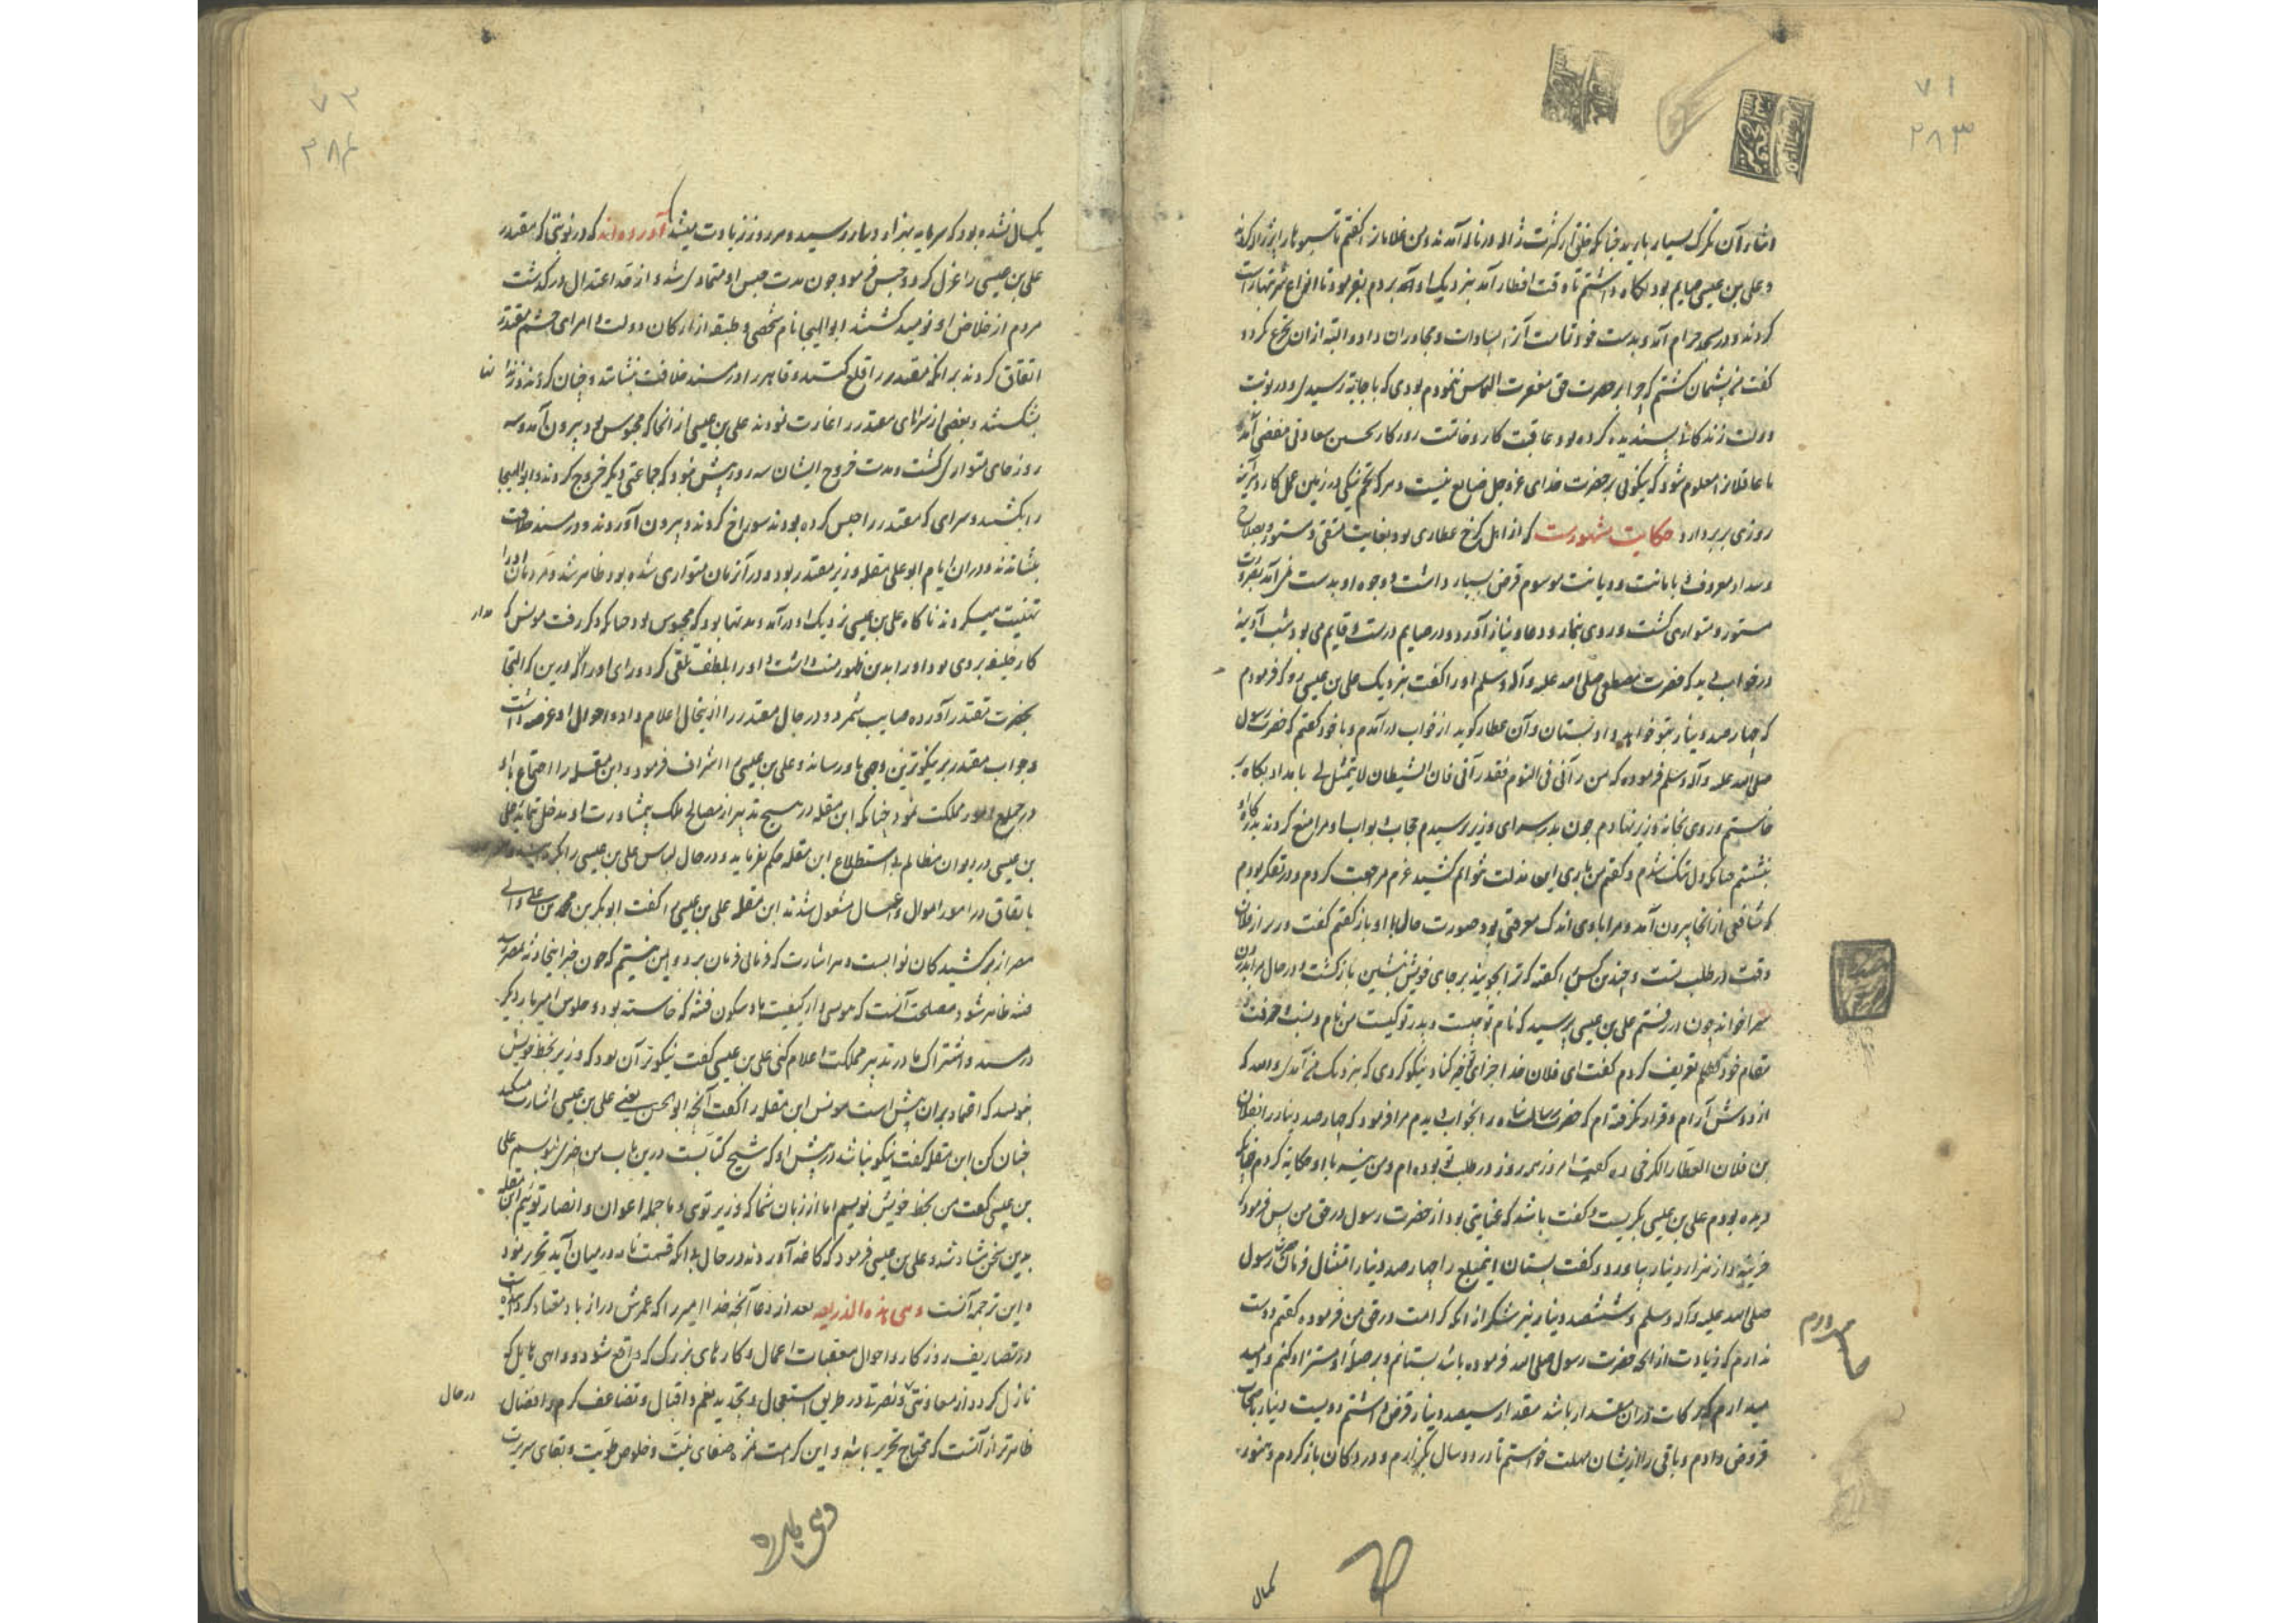 ۷۱
۲۸۳
و شاور آن تگرگ بسیار بارید چنانکه خلق از کثرت ژاله در ناله آمدند و من غلامانرا گفتم تا سبوها را پر ژاله کردند
و علی بن عیسی صایم بود نگاه داشتم تا وقت افطار آمد بنزدیک او آوردم بفرمود تا انواع شربتها راست
کردند و در مسجد حرام آمد و بدست خود تمامت آنرا بسادات و مجاوران داد و البته ازان تجرع نکرد و
گفت من پشیمان گشتم که چرا بر حضرت حق مغفرت التماس ننمودم بودی که باجابة رسیدی و در نوبت
دولت زندگانی پسندیده کرده بود عاقبت کار و خاتمت روزکار بحسن سعادتی مفضی آمد
تا عاقلانرا معلوم شود که نیکوئی بر حضرت خدای عز و جل ضایع نیست و هر که تخم نیکی در زمین عمل کارد هر آینه
روزی بر بردارد حکایت مشهورست که از اهل کرخ عطاری بود بغایت متقی و مستور و بصلاح
و سداد معروف و بامانت و دیانت موسوم قرض بسیار داشت و وجوه او بدست نمی آمد بضرورت
مستور و متواری گشت و روی بنماز و دعا و نیاز آورد و در صیام درست و قایم می بود شب آدینه
در خواب دید که حضرت مصطفی صلی الله علیه و آله و سلم او را گفت بنزدیک علی بن عیسی رو که فرمودم
که چهار صد دینار بتو خواهد داد بستان و آن عطار گوید از خواب درآمدم و با خود گفتم که حضرت رسول
صلی الله علیه و آله و سلم فرموده که من رآنی فی النوم فقد رآنی فان الشیطان لا یتمثل بی بامداد پگاه
خاستم و روی بخانه وزیر نهادم چون بدر سرای وزیر رسیدم حجاب و بواب او مرا منع کردند بدرگاه او
بنشستم چنانکه دل تنگ شدم و گفتم من باری این مذلت نتوانم کشید عزم مراجعت کردم و در تفکر بودم
که شافعی از انجا بیرون آمد و مرا با وی اندک معرفتی بود صورت حال با او باز گفتم گفت وزیر از فلان
وقت در طلب تست و چندین کس را گفته که ترا بجویند بر جای خویش بنشین بازگشت و در حال مرا بدرون
سرا خواند چون در رفتم علی بن عیسی پرسید که نام تو چیست و پدر تو کیست من نام و نسب و حرفت
مقام خود بتمام تعریف کردم گفت ای فلان خدا جزای خیر کناد نیکو کردی که بنزدیک من آمدی والله که
از دوش آرام و قرار نگرفته ام که حضرت رسالت پناه را بخواب دیدم مرا فرمود که چهار صد دینار را بفلان
بن فلان العطار الکرخی ده گفت امروز هر روز در طلب تو بوده ام و من نیز با او حکایة کردم چنانکه
دیده بودم علی بن عیسی بگریست و گفت باشد که عنایتی بود از حضرت رسول در حق من پس فرمود که
خزینه دار هزار دینار بیاورد و گفت بستان این مبلغ را چهار صد دینار امتثال فرمان حضرت رسول
صلی الله علیه و آله و سلم و ششصد دینار نیز شکرانه آنکه کرامت در حق من فرموده گفتم دوست
ندارم که زیادت از آنچه حضرت رسول صلی الله فرموده باشد بستانم و بر صلهٔ او مستزاد کنم و امید
میدارم که برکات دران مقدار باشد مقدار سیصد دینار قرض داشتم دویست دینار باصحاب
قروض دادم و باقی را ازیشان مهلت خواستم تا در دو سال بگزارم و در دکان باز کردم و هنوز
۷۲
۲۸۴
یکسال نشده بود که سرمایه بهزار دینار رسید و هر روز زیادت میشد آورده اند که در نوبتی که مقتدر
علی بن عیسی را عزل کرد و حبس فرمود چون مدت حبس او متمادی شد و از حد اعتدال درگذشت
مردم از خلاص او نومید گشتند ابو الهیجا نام شخصی و طبقه از ارکان دولت و امرای حشم مقتدر
اتفاق کردند بر آنکه مقتدر را قلع کنند و قاهر را در مسند خلافت بنشانند و چنان کردند و زندانها
بشکستند و بعضی از سراهای مقتدر را غارت نمودند علی بن عیسی از انجا که محبوس بود بیرون آمد و سه
روز جای متواری گشت و مدت خروج ایشان سه روز بیش نبود که جماعتی دیگر خروج کردند و ابو الهیجا
را بکشتند و سرای که مقتدر را حبس کرده بودند سوراخ کردند و بیرون آوردند و در مسند خلافت
بنشاندند و دران ایام ابو علی مقله وزیر مقتدر بود و در آنزمان متواری شده بود ظاهر شد و مردمان او را
تهنیت میکردند ناگاه علی بن عیسی نزدیک او درآمد و مدتها بود که محبوس بود چنانکه ذکر رفت مونس که مدار
کار خلیفه بر وی بود او را بدین ظهور منت داشت و او را بلطف تلقی کرد و رای او را در این که التجا
بحضرت مقتدر آورده صایب شمرد و در حال مقتدر را ازین حال اعلام داد و احوال او عرضه داشت
و جواب مقتدر بر نیکوترین وجهی باو رساند و علی بن عیسی را اشراف فرمود و ابن مقله را احتیاج باو
در جمیع امور مملکت نمود چنانکه ابن مقله در هیچ تدبیر از مصالح ملک بی مشاورت او مدخل نماید علی
بن عیسی در دیوان مظالم بی استطلاع ابن مقله حکم بفرماید و در حال لباس علی بن عیسی را
باتفاق در امور اموال و اعمال مشغول شدند ابن مقله علی بن عیسی را گفت ابوبکر بن محمد بن علی والی
مصر از برکشیدگان توست
فتنه ظاهر شود مصلحت آنست که مونس را از کیفیت باد سکون فتنه که خاسته بود و جلوس امیر بار دیگر
در مسند و اشتراک ما در تدبیر مملکت اعلام کنی علی بن عیسی گفت نیکوتر آن بود که وزیر بخط خویش
بنویسد که اعتماد بران بیش است مونس ابن مقله را گفت آنچه ابو الحسن یعنی علی بن عیسی اشارت میکند
چنان کن ابن مقله گفت نیکو نباشد در پیش او که شیخ کتابست درین باب من چیزی نویسم علی
بن عیسی گفت من بخط خویش نویسم اما از زبان شما که وزیر توی و ما جمله اعوان و انصار توئیم ابن مقله
بدین سخن شاد شد و علی بن عیسی فرمود که کاغذ آوردند در حال بی آنکه قسمت نامه در میان آید تحریر نمود
و این ترجمه آنست و هی هذه الذریعه بعد از دعا آنچه خدا امیر را که عمرش دراز باد معتاد کرده است
در تصاریف روزگار و احوال معقبات اعمال و کارهای بزرگ که واقع شود و دواهی هایل که
نازل گردد از معاونتی و نصرتی در طریق استعجال و تجدید نعم و اقبال و تضاعف کرم و افضال در حال
ظاهرتر از آنست که محتاج تحریر باشد و این کرامت ثمره صفای نیت و خلوص طویت و بقای سریرت